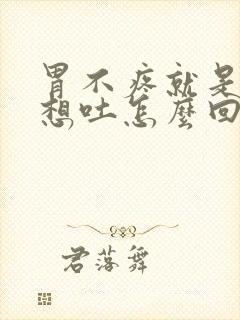 胃不疼就是
想吐怎麼回
君落舞